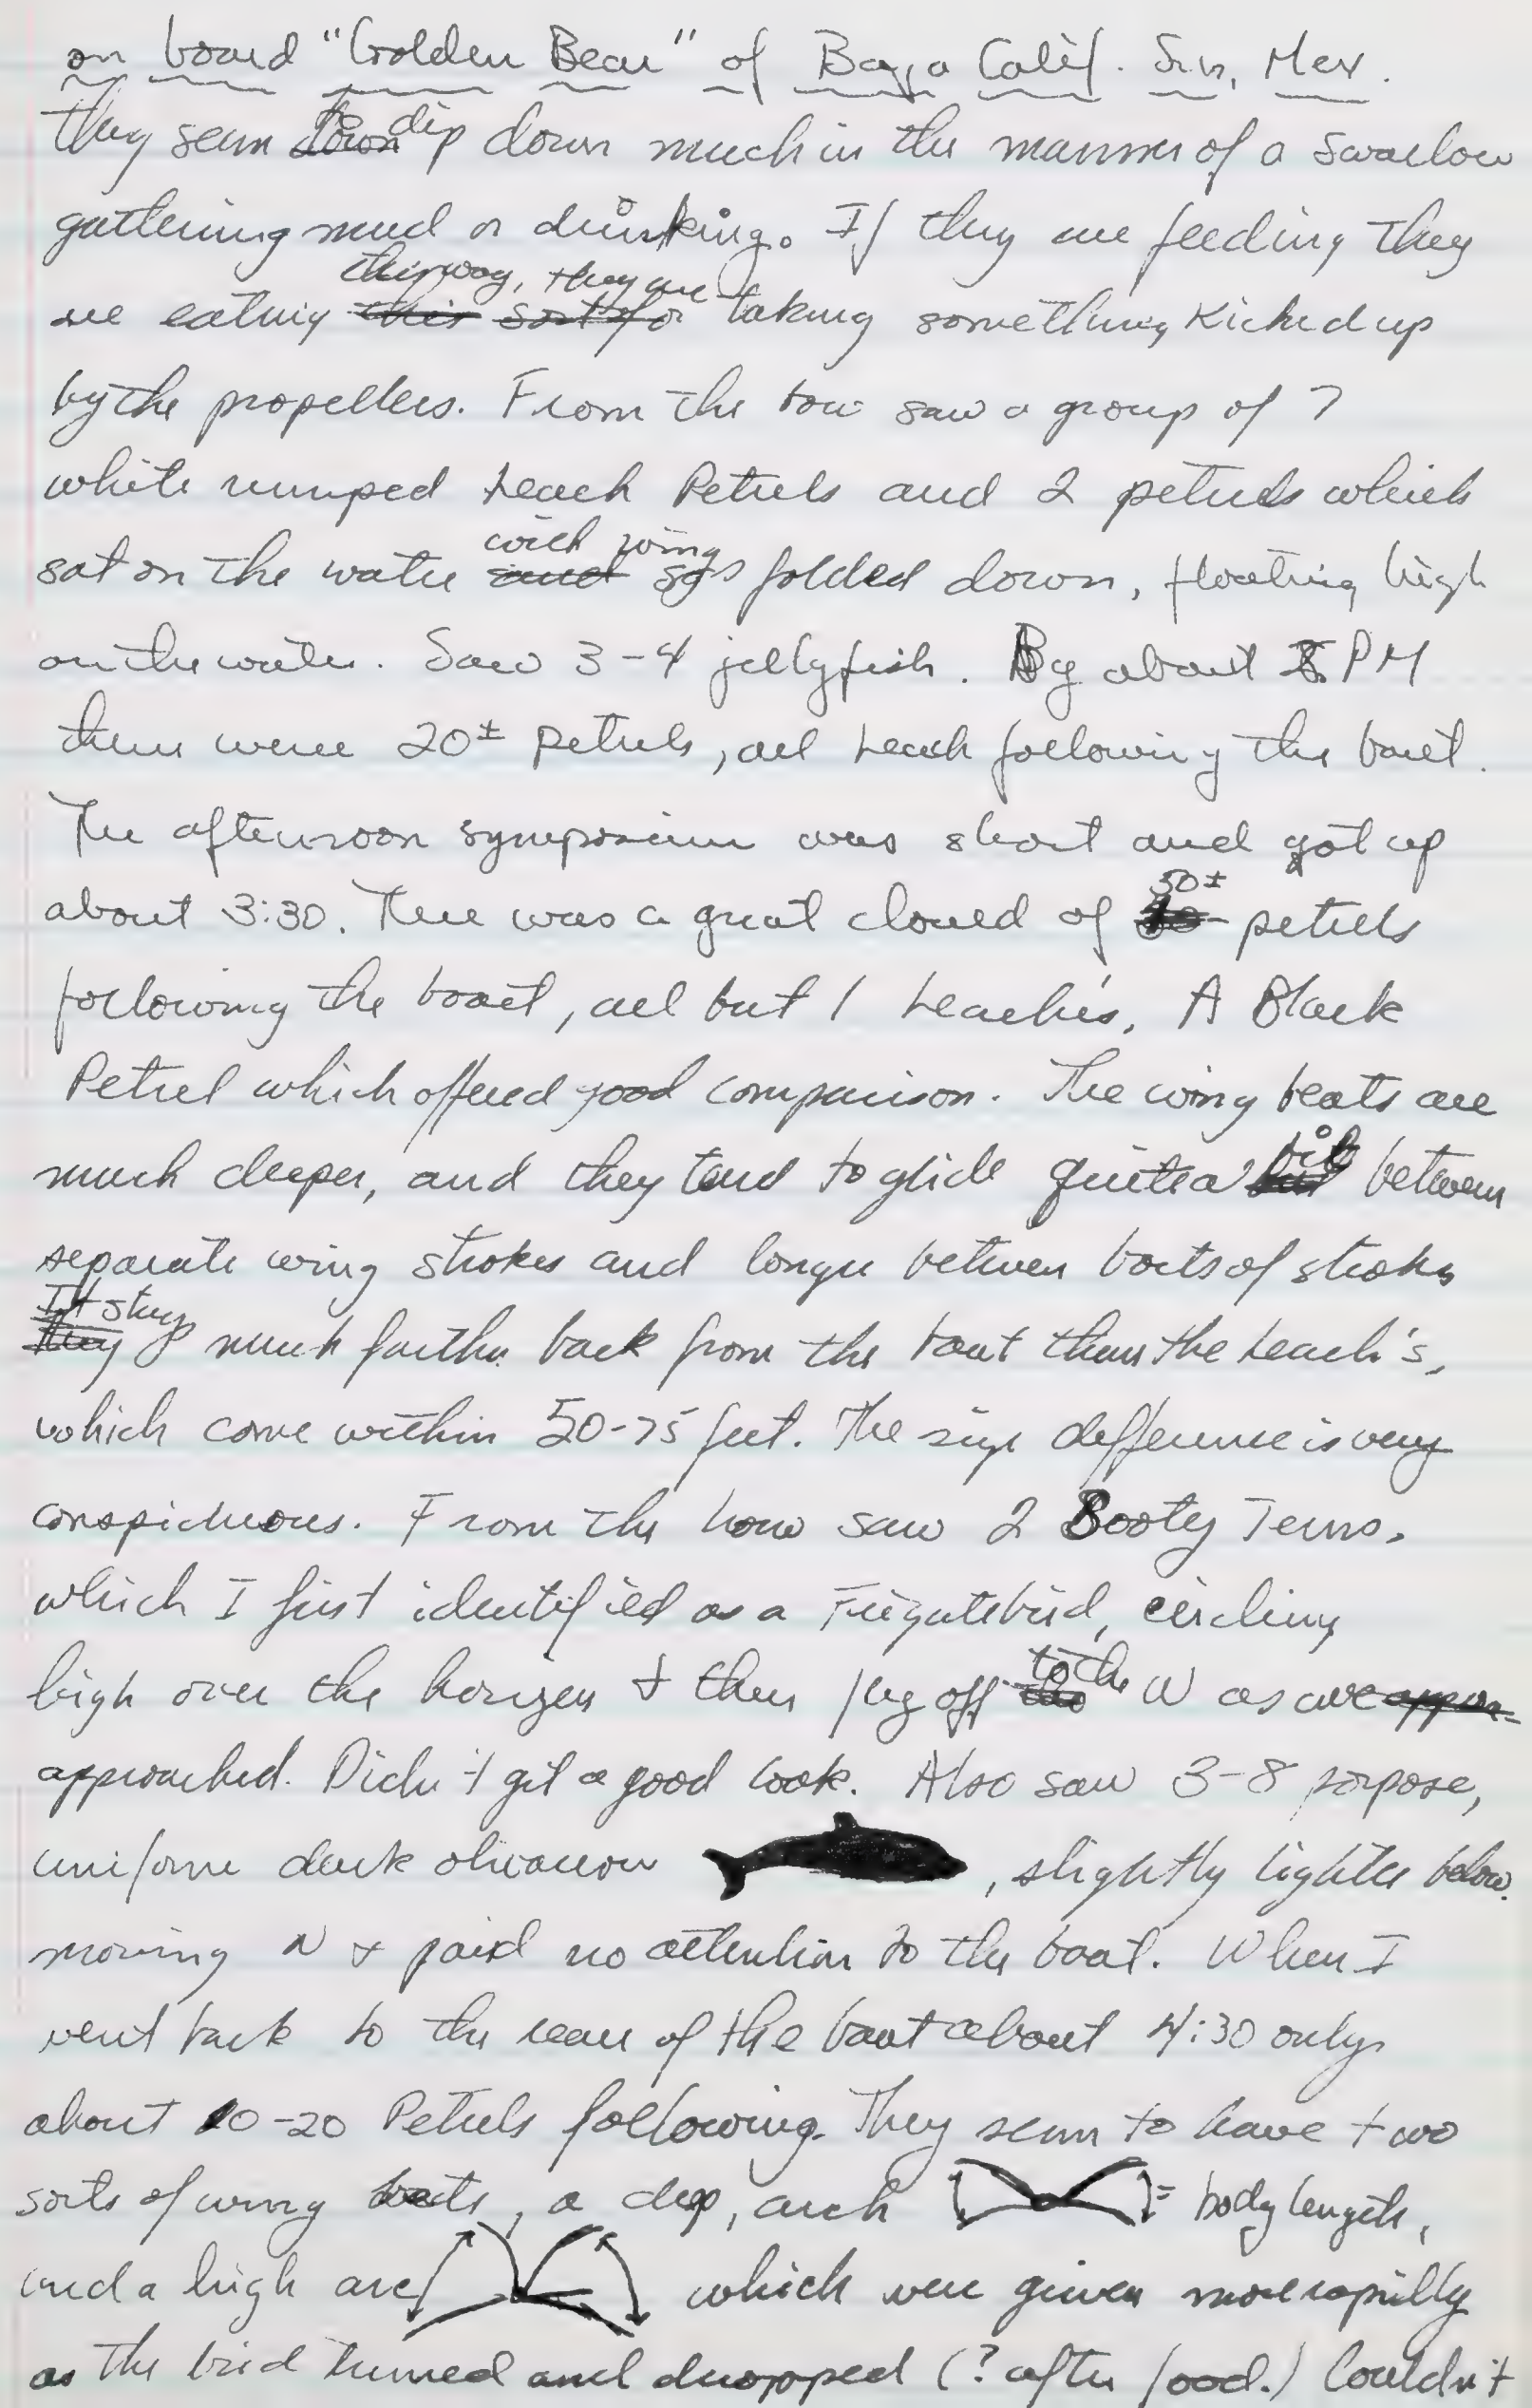 on board "Golden Bear" of Baja Calif. Sur, Mex.
They seem to dip down much in the manner of a swallow
gathering mud or drinking. If they are feeding they
are eating this way, they are taking something kicked up
by the propellers. From the bow saw a group of 7
white rumped Leach Petrels and 2 petrels which
sat on the water with wings folded down, floating high
on the water. Saw 3-4 jellyfish. By about PM
there were 20± petrels, all Leach following the boat.
The afternoon symposium was short and got up
about 3:30. There was a great cloud of 50± petrels
following the boat, all but 1 Leach's. A Black
Petrel which offered good comparison. The wing beats are
much deeper, and they tend to glide quite a bit between
separate wing strokes and longer between bouts of strokes
It stays much farther back from the boat than the Leach's,
which come within 50-75 feet. The size difference is very
conspicuous. From the bow saw 2 Sooty Terns,
which I first identified as a Frigatebird, circling
high over the horizon & then fly off to the W as we
approached. Didn't get a good look. Also saw 3-8 porpose,
uniform dark , slightly lighter below.
moving N & paid no attention to the boat. When I
went back to the rear of the boat about 4:30 only
about 10-20 Petrels following. They seem to have two
sorts of wing beats, a deep, arch = body length,
and a high arc which were given more rapidly
as the bird turned and dropped (? after food.) Couldn't